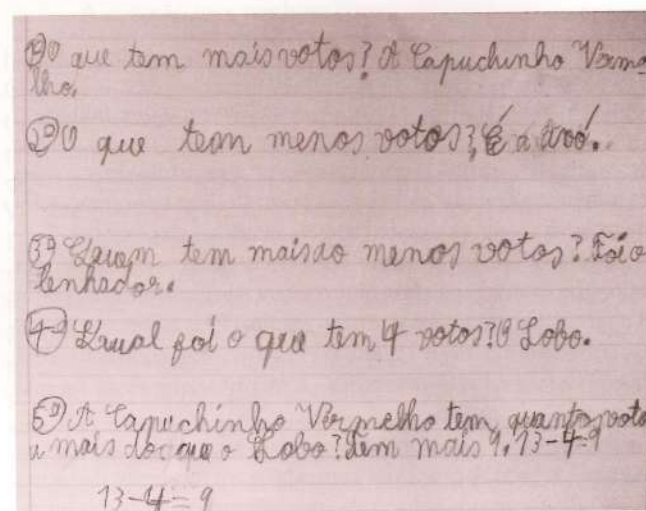 1º O que tem mais votos? A Capuchinho Verme
lho.
2º O que tem menos votos? É a avó.
3º Quem tem mais ao menos votos? Foi o
lenhador.
4º Qual foi o que tem 4 votos? O Lobo.
5º A Capuchinho Vermelho tem quantos voto
s mais do que o Lobo? Tem mais 9. 13-4=9
13-4=9